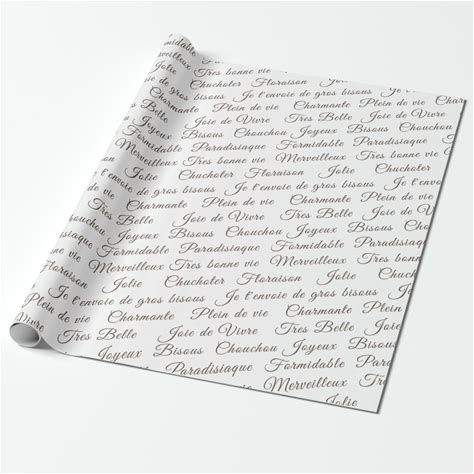 Formidable
Jolie Tres bonne vie
Chuchoter Floraison Jolie
Je t'envoie de gros bisous Je t'envoie de gros bisous
Charmante Plein de vie Charmante Plein de vie Charmante
Tres Belle Joie de Vivre Tres Belle Joie de Vivre
Joyeux Bisous Chouchou Joyeux Bisous Chouchou
Formidable Paradisiaque Formidable Paradisiaque
Merveilleux Tres bonne vie Merveilleux Tres bonne vie
Jolie Chuchoter Floraison Jolie Chuchoter
Je t'envoie de gros bisous Je t'envoie de gros bisous
Charmante Plein de vie Charmante Plein de vie
Tres Belle Joie de Vivre Tres Belle Joie de Vivre
Joyeux Bisous Chouchou Joyeux Bisous
Formidable Paradisiaque Formidable Paradisiaque
Merveilleux Tres bonne vie Merveilleux Tres bonne vie
Chuchoter Floraison Jolie Chuchoter
Je t'envoie de gros bisous Je t'envoie de gros
Plein de vie Charmante Plein de vie Charmante
Joie de Vivre Tres Belle Joie de Vivre Tres Belle
Joyeux Bisous Chouchou Joyeux
Paradisiaque Formidable
Merveilleux Tres
Jolie